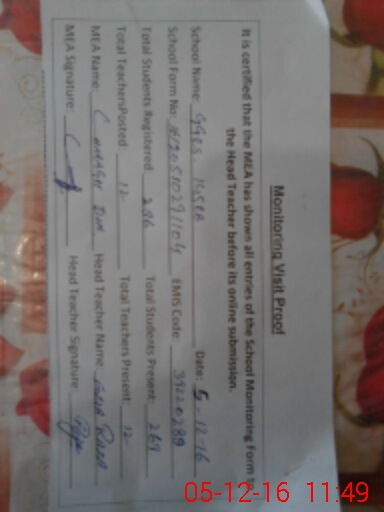 Monitoring Visit Proof
It is certified that the MEA has shown all entries of the School Monitoring Form to
the Head Teacher before its online submission.
School Name: GGES Date: 5-12-16
School Form No: EMIS Code: 39220289
Total Students Registered: 296 Total Students Present: 269
Total Teachers Posted: 12 Total Teachers Present: 12
MEA Name: Din Head Teacher Name:
MEA Signature: Head Teacher Signature:
05-12-16 11:49